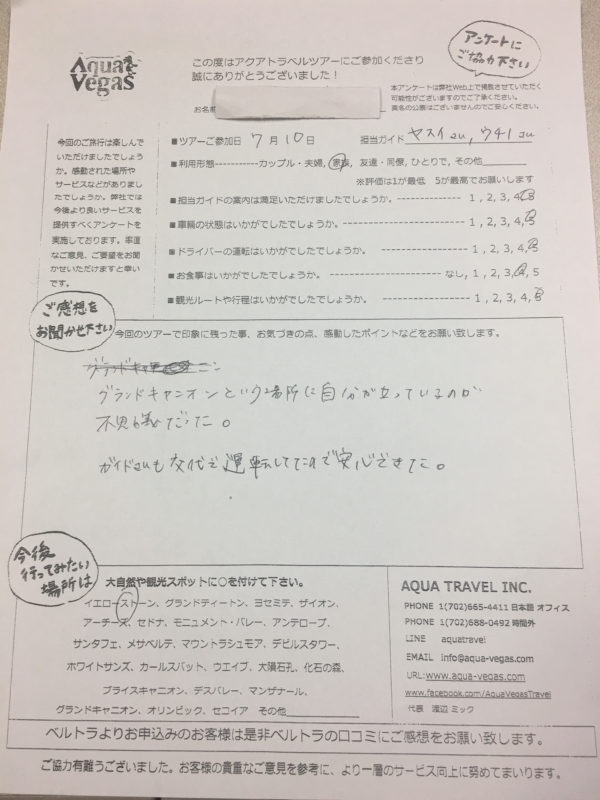 Aqua Vegas
この度はアクアトラベルツアーにご参加くださり
誠にありがとうございました！
アンケートにご協力下さい
本アンケートは弊社Web上で掲載させていただく
可能性がございますのでご了承ください。
実名の公表はございませんのでご安心ください。
お名前
今回のご旅行は楽しんで
いただけましたでしょう
か。感動された場所や
サービスなどがありまし
たでしょうか。弊社では
今後より良いサービスを
提供すべくアンケートを
実施しております。率直
なご意見、ご要望をお聞
かせいただけますと幸い
です。
■ツアーご参加日 7月10日 担当ガイド ヤスイさん,ウチノさん
■利用形態------------カップル・夫婦, 家族, 友達・同僚, ひとりで, その他
※評価は1が最低 5が最高でお願いします
■担当ガイドの案内は満足いただけましたでしょうか。---------------- 1, 2, 3, 4, 5
■車輌の状態はいかがでしたでしょうか。---------------- 1, 2, 3, 4, 5
■ドライバーの運転はいかがでしたでしょうか。---------------- 1, 2, 3, 4, 5
■お食事はいかがでしたでしょうか。---------------- なし, 1, 2, 3, 4, 5
■観光ルートや行程はいかがでしたでしょうか。---------------- 1, 2, 3, 4, 5
ご感想をお聞かせ下さい
今回のツアーで印象に残った事、お気づきの点、感動したポイントなどをお願い致します。
グランドキャニオンという場所に自分が立っているのが
不思議だった。
ガイドさんも交代で運転してたので安心できた。
今後行ってみたい場所は
大自然や観光スポットに○を付けて下さい。
イエローストーン、グランドティートン、ヨセミテ、ザイオン、
アーチーズ、セドナ、モニュメント・バレー、アンテロープ、
サンタフェ、メサベルテ、マウントラシュモア、デビルスタワー、
ホワイトサンズ、カールスバット、ウエイブ、大隕石孔、化石の森、
ブライスキャニオン、デスバレー、マンザナール、
グランドキャニオン、オリンピック、セコイア その他
AQUA TRAVEL INC.
PHONE 1(702)665-4411 日本語 オフィス
PHONE 1(702)688-0492 時間外
LINE aquatravel
EMAIL info@aqua-vegas.com
URL:www.aqua-vegas.com
www.facebook.com/AquaVegasTravel
代表 渡辺 ミック
ベルトラよりお申込みのお客様は是非ベルトラの口コミにご感想をお願い致します。
ご協力有難うございました。お客様の貴重なご意見を参考に、より一層のサービス向上に努めてまいります。